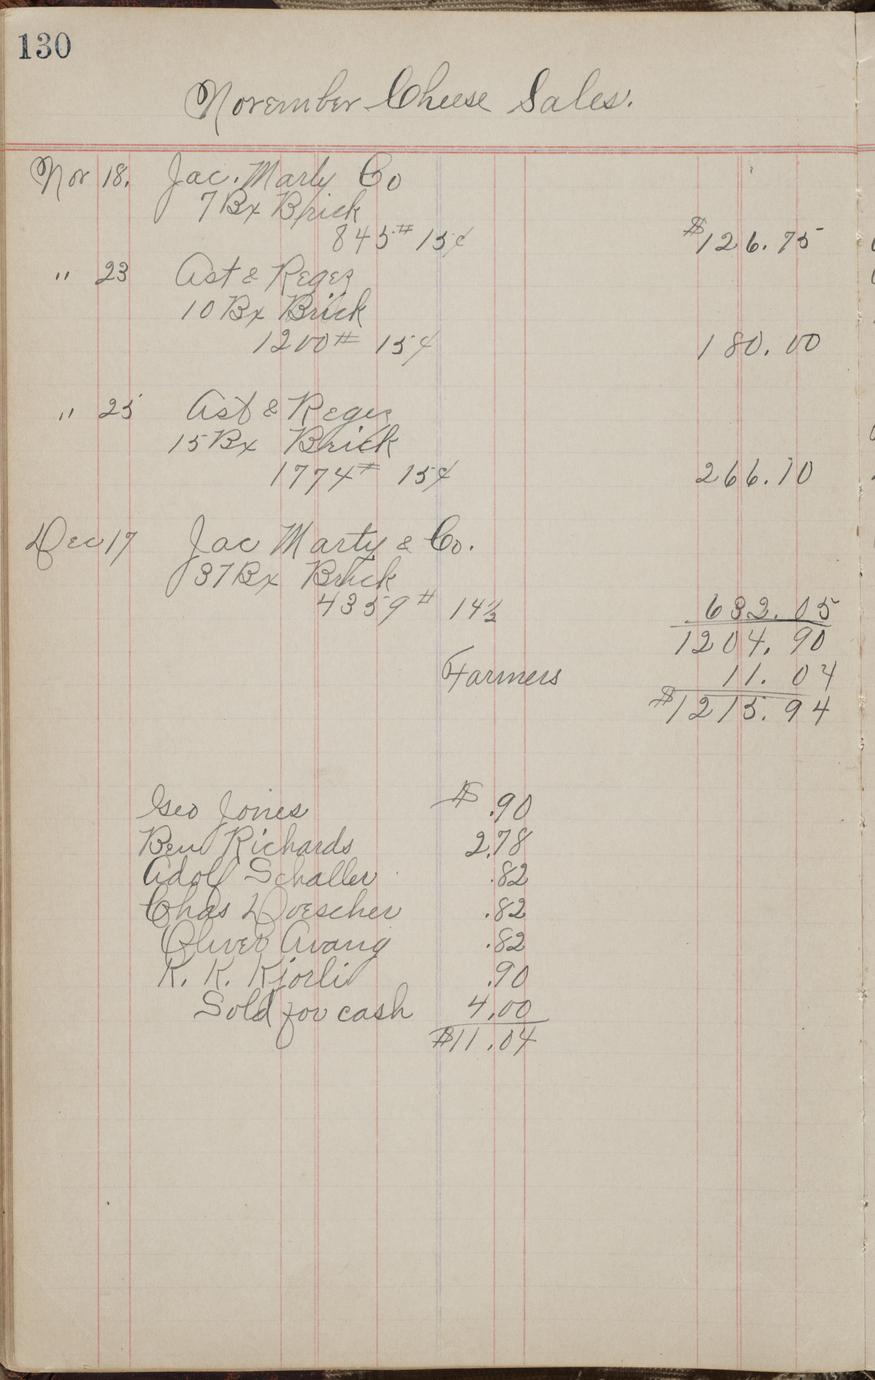 130
November Cheese Sales.
Nov 18. Jac. Marty Co
7 Bx Brick
845# 15¢ $126.75
" 23 Ast & Reges
10 Bx Brick
1200# 15¢ 180.00
" 25 Ast & Reges
15 Bx Brick
1774# 15¢ 266.10
Dec 17 Jac Marty & Co.
37 Bx Brick
4359# 14½ 632.05
1204.90
Farmers 11.04
$1215.94
Geo Jones $.90
Ben Richards 2.78
Adolf Schaller .82
Chas Doescher .82
Oliver Avang .82
K. K. Kjorli .90
Sold for cash 4.00
$11.04